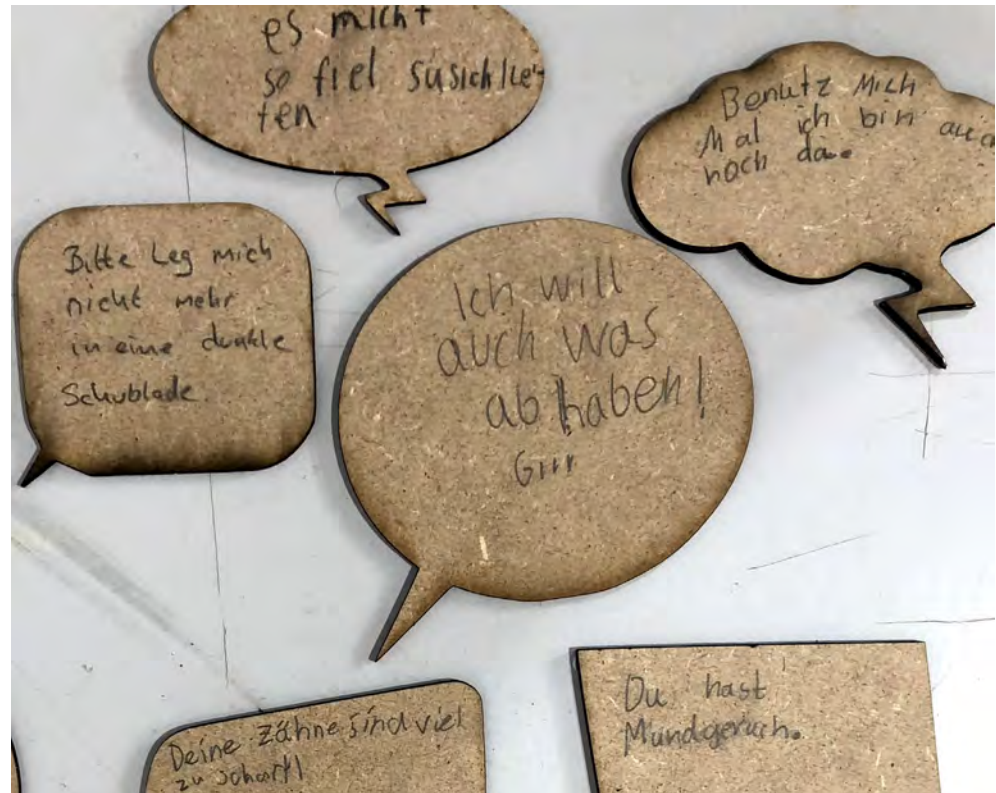 es micht
so fiel susichlei-
ten
Benutz Mich
Mal ich bin auch
noch da.
Bitte Leg mich
nicht mehr
in eine dunkle
Schublade.
Ich will
auch was
abhaben!
Grrr
Deine Zähne sind viel
zu scharf!
Du hast
Mundgeruch.